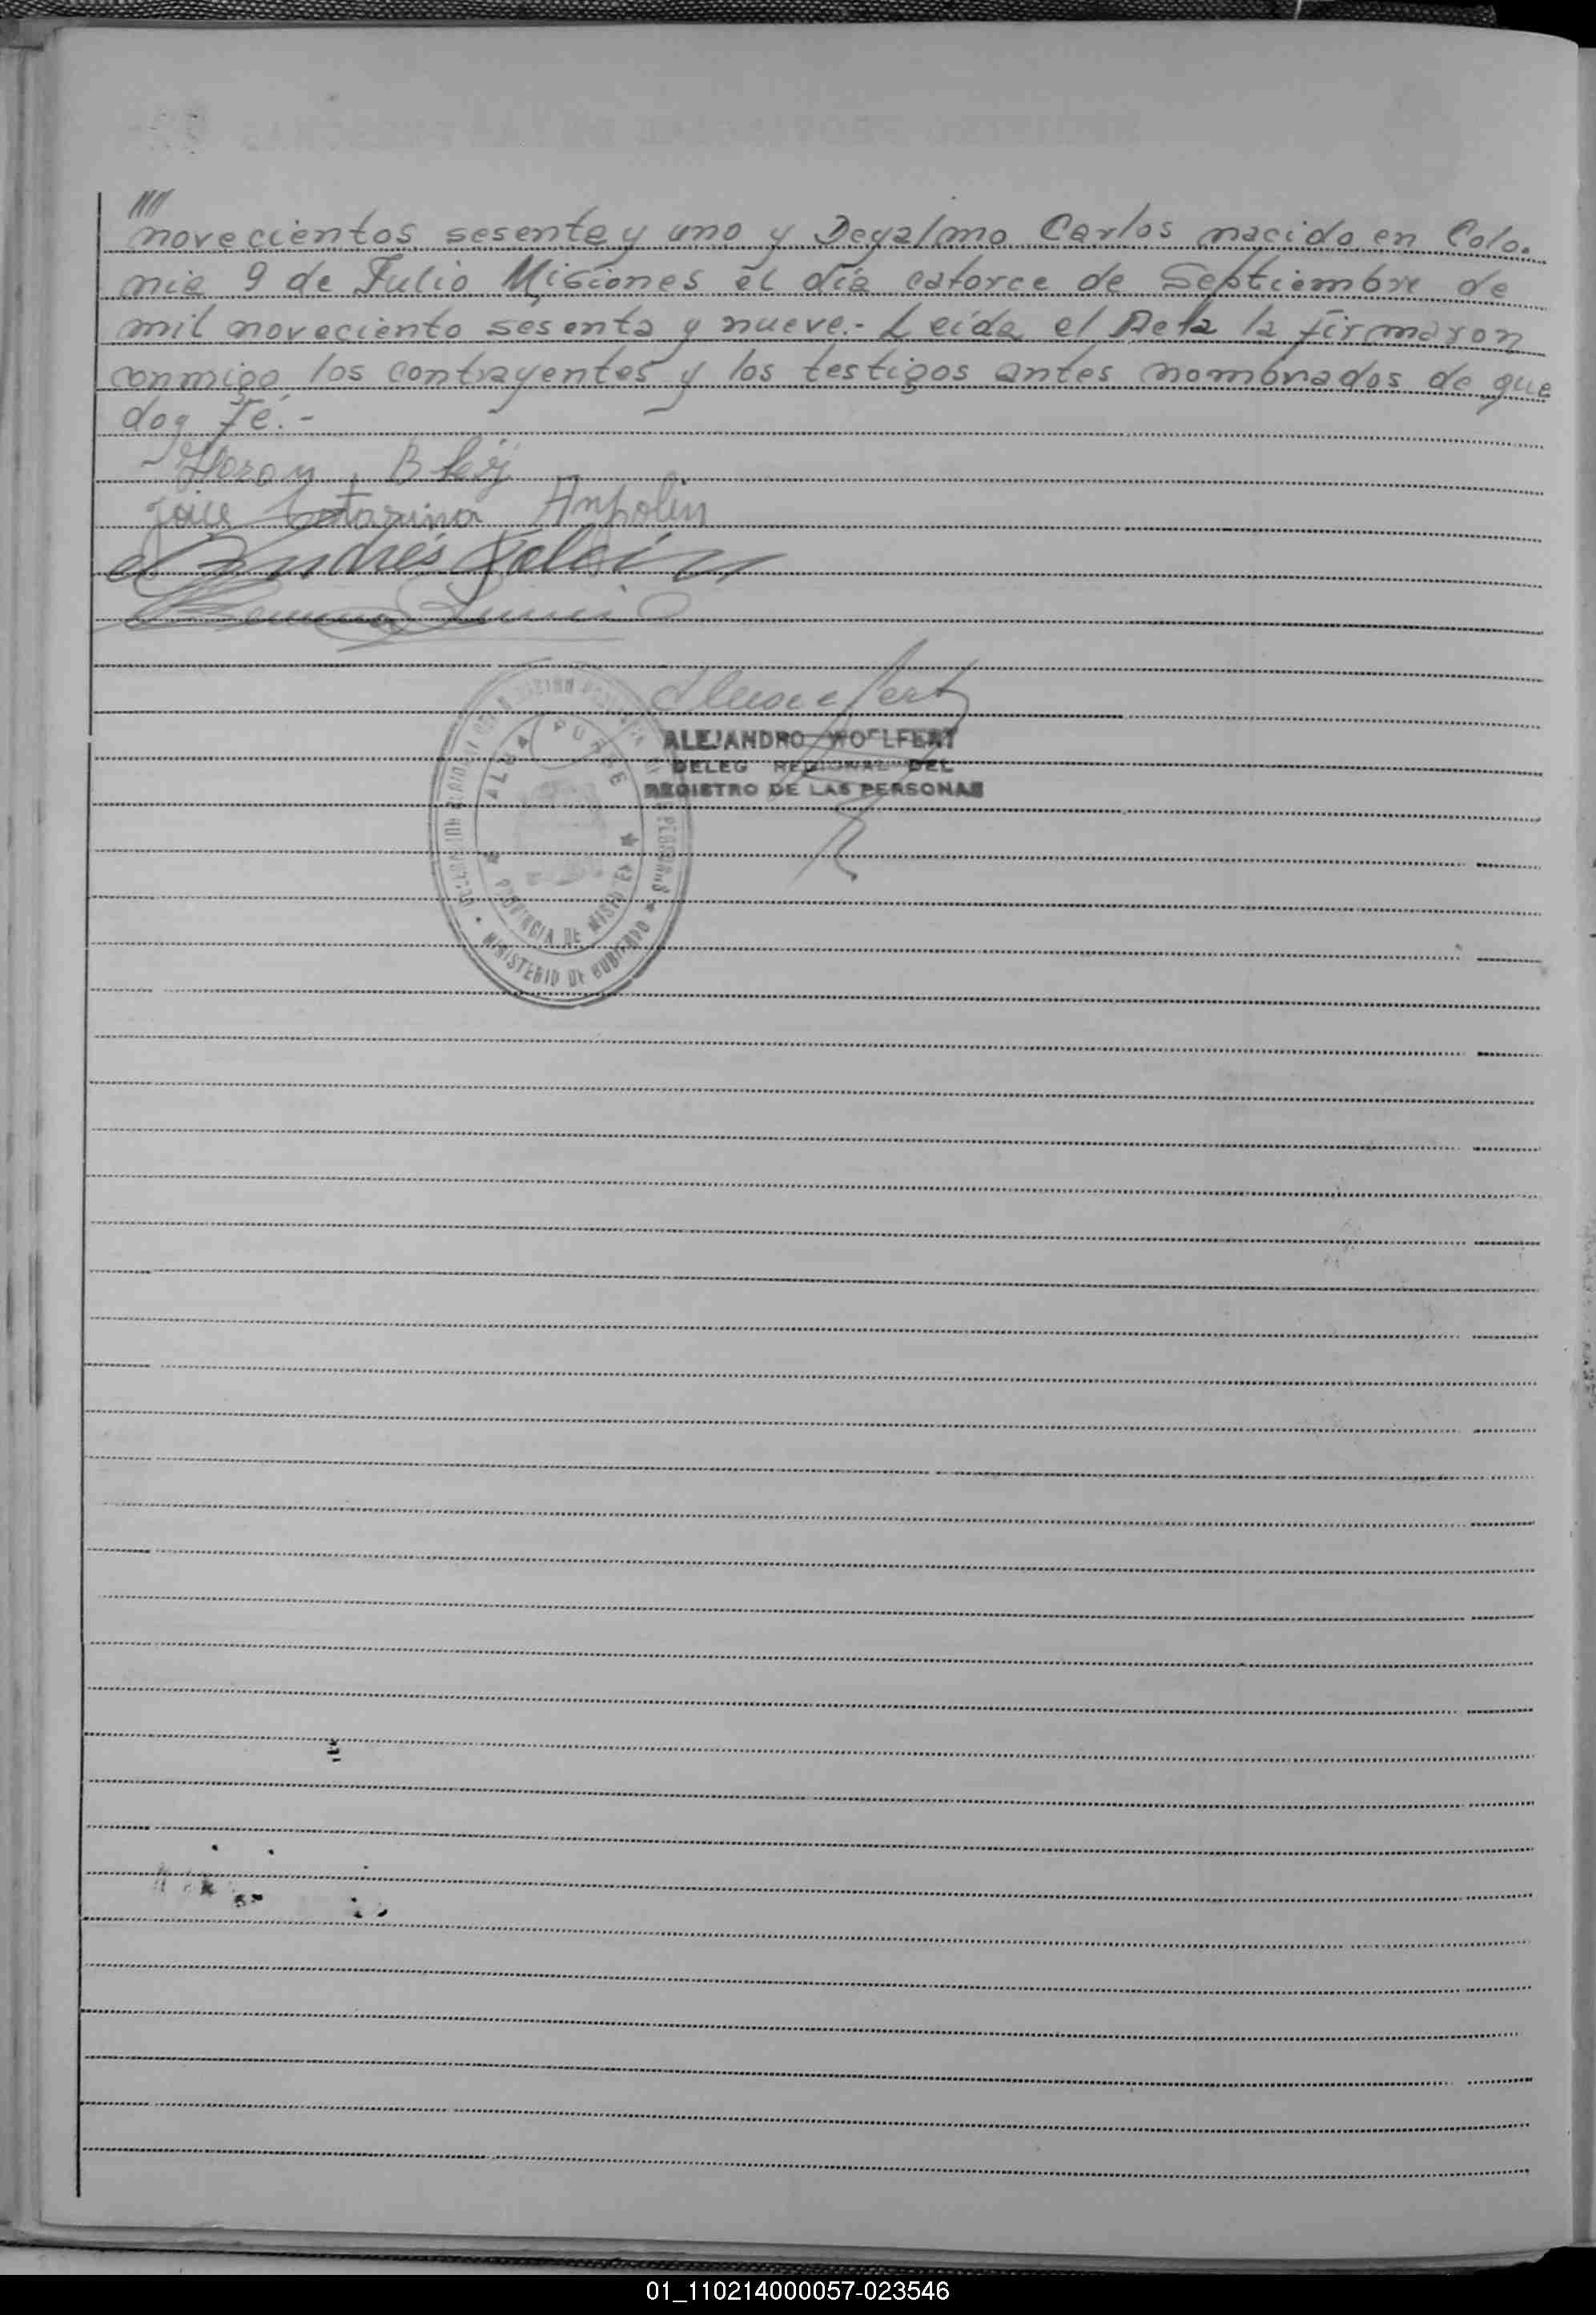 ////
novecientos sesenta y uno y Degalmo Carlos nacido en Colo-
nia 9 de Julio Misiones el día catorce de Septiembre de
mil noveciento sesenta y nueve.- Leída el Acta la firmaron
conmigo los contrayentes y los testigos antes nombrados de que
doy Fé.-
Andrés
ALEJANDRO WOELFERT
DELEG REGIONAL DEL
REGISTRO DE LAS PERSONAS
PROVINCIA DE MISIONES
MINISTERIO DE GOBIERNO
01_110214000057-023546